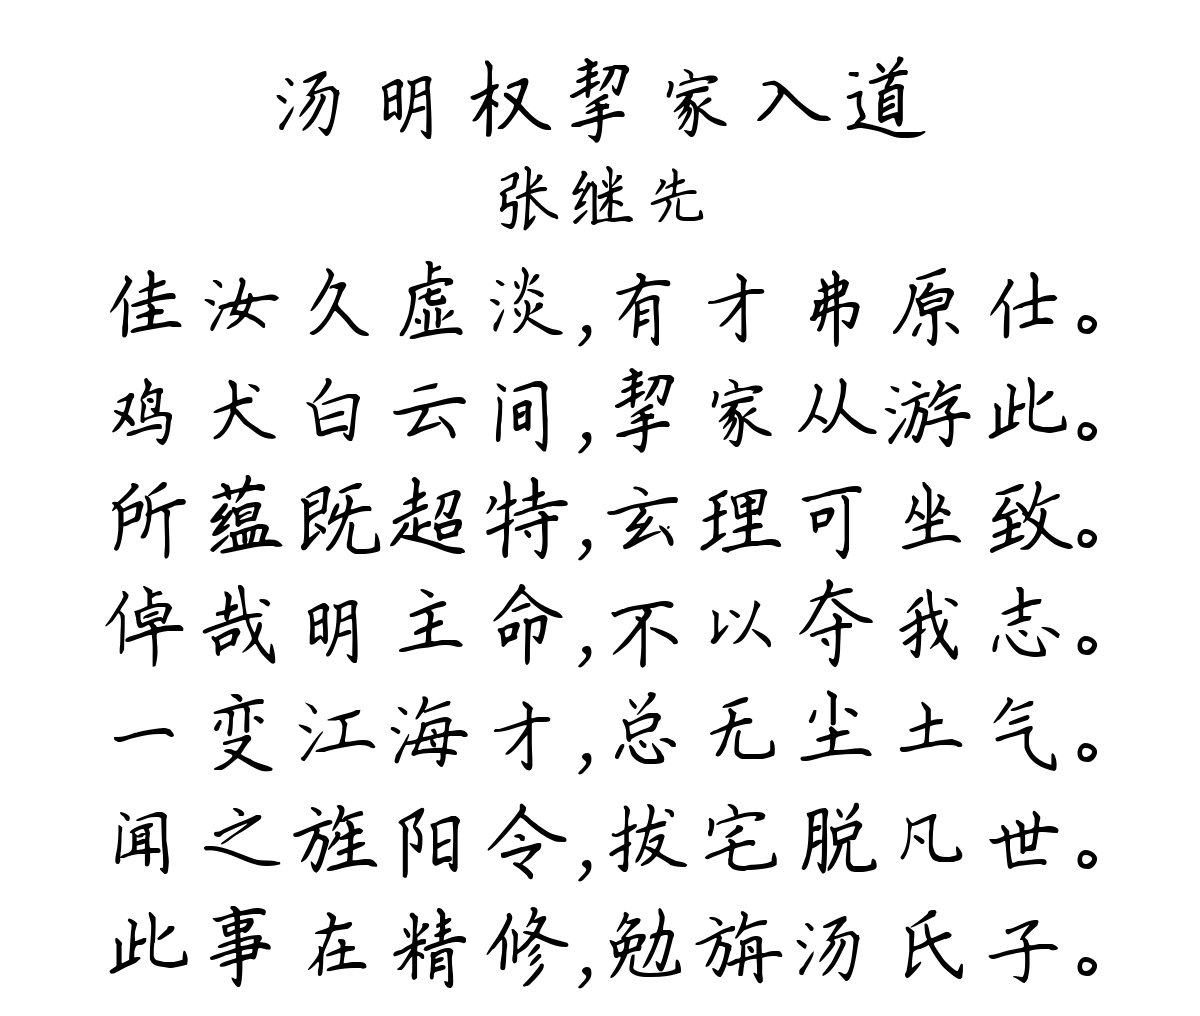 汤明权挈家入道
张继先
佳汝久虚淡,有才弗原仕。
鸡犬白云间,挈家从游此。
所蕴既超特,玄理可坐致。
倬哉明主命,不以夺我志。
一变江海才,总无尘土气。
闻之旌阳令,拔宅脱凡世。
此事在精修,勉旃汤氏子。